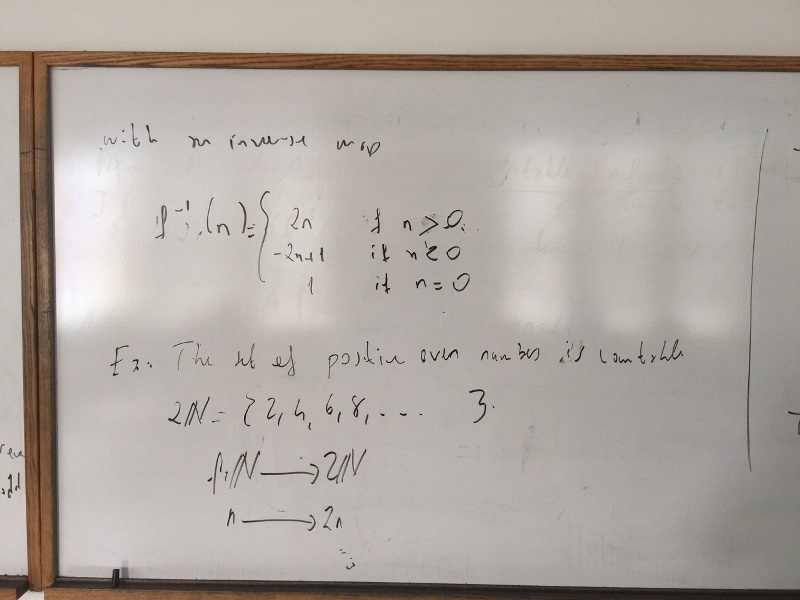 with an inverse map
f⁻¹(n) = { 2n if n > 0.
-2n+1 if n < 0
1 if n = 0
Ex. The set of positive even numbers is countable
2ℕ = { 2, 4, 6, 8, ... }.
f: ℕ ⟶ 2ℕ
n ⟶ 2n